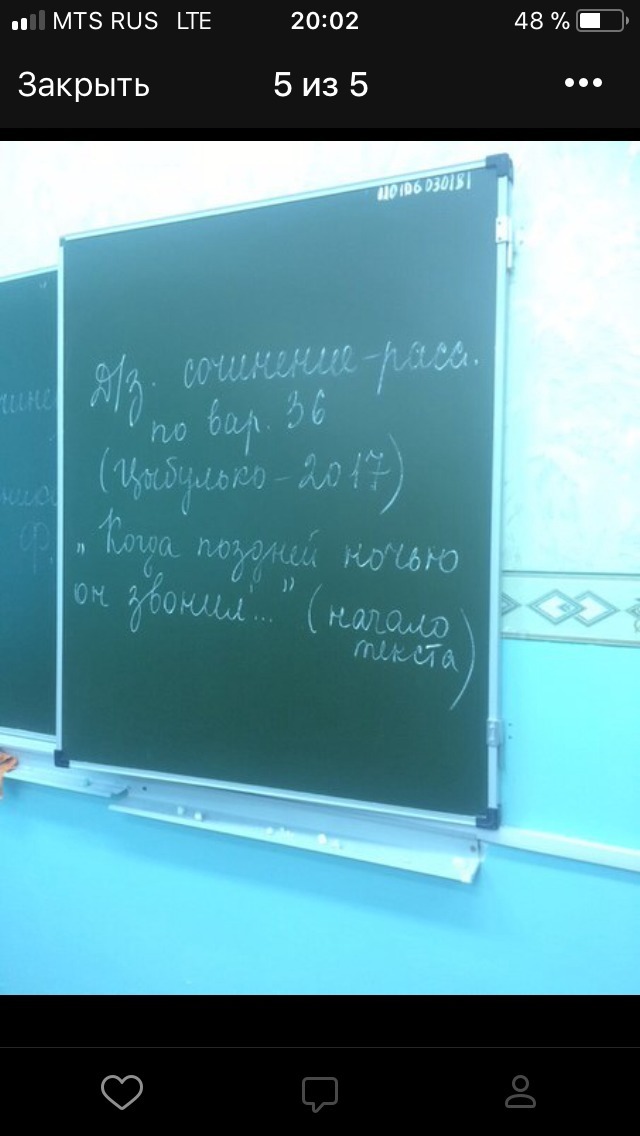 MTS RUS LTE 20:02 48 %
Закрыть 5 из 5
Д/з. сочинение-расс.
по вар. 36
(Цыбулько - 2017)
„Когда поздней ночью
он звонил..." (начало
текста)